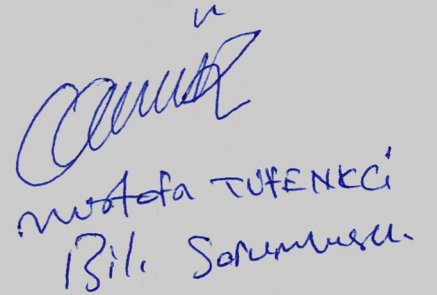 Mustafa TUFENKCİ
Bil. Sorumlusu.